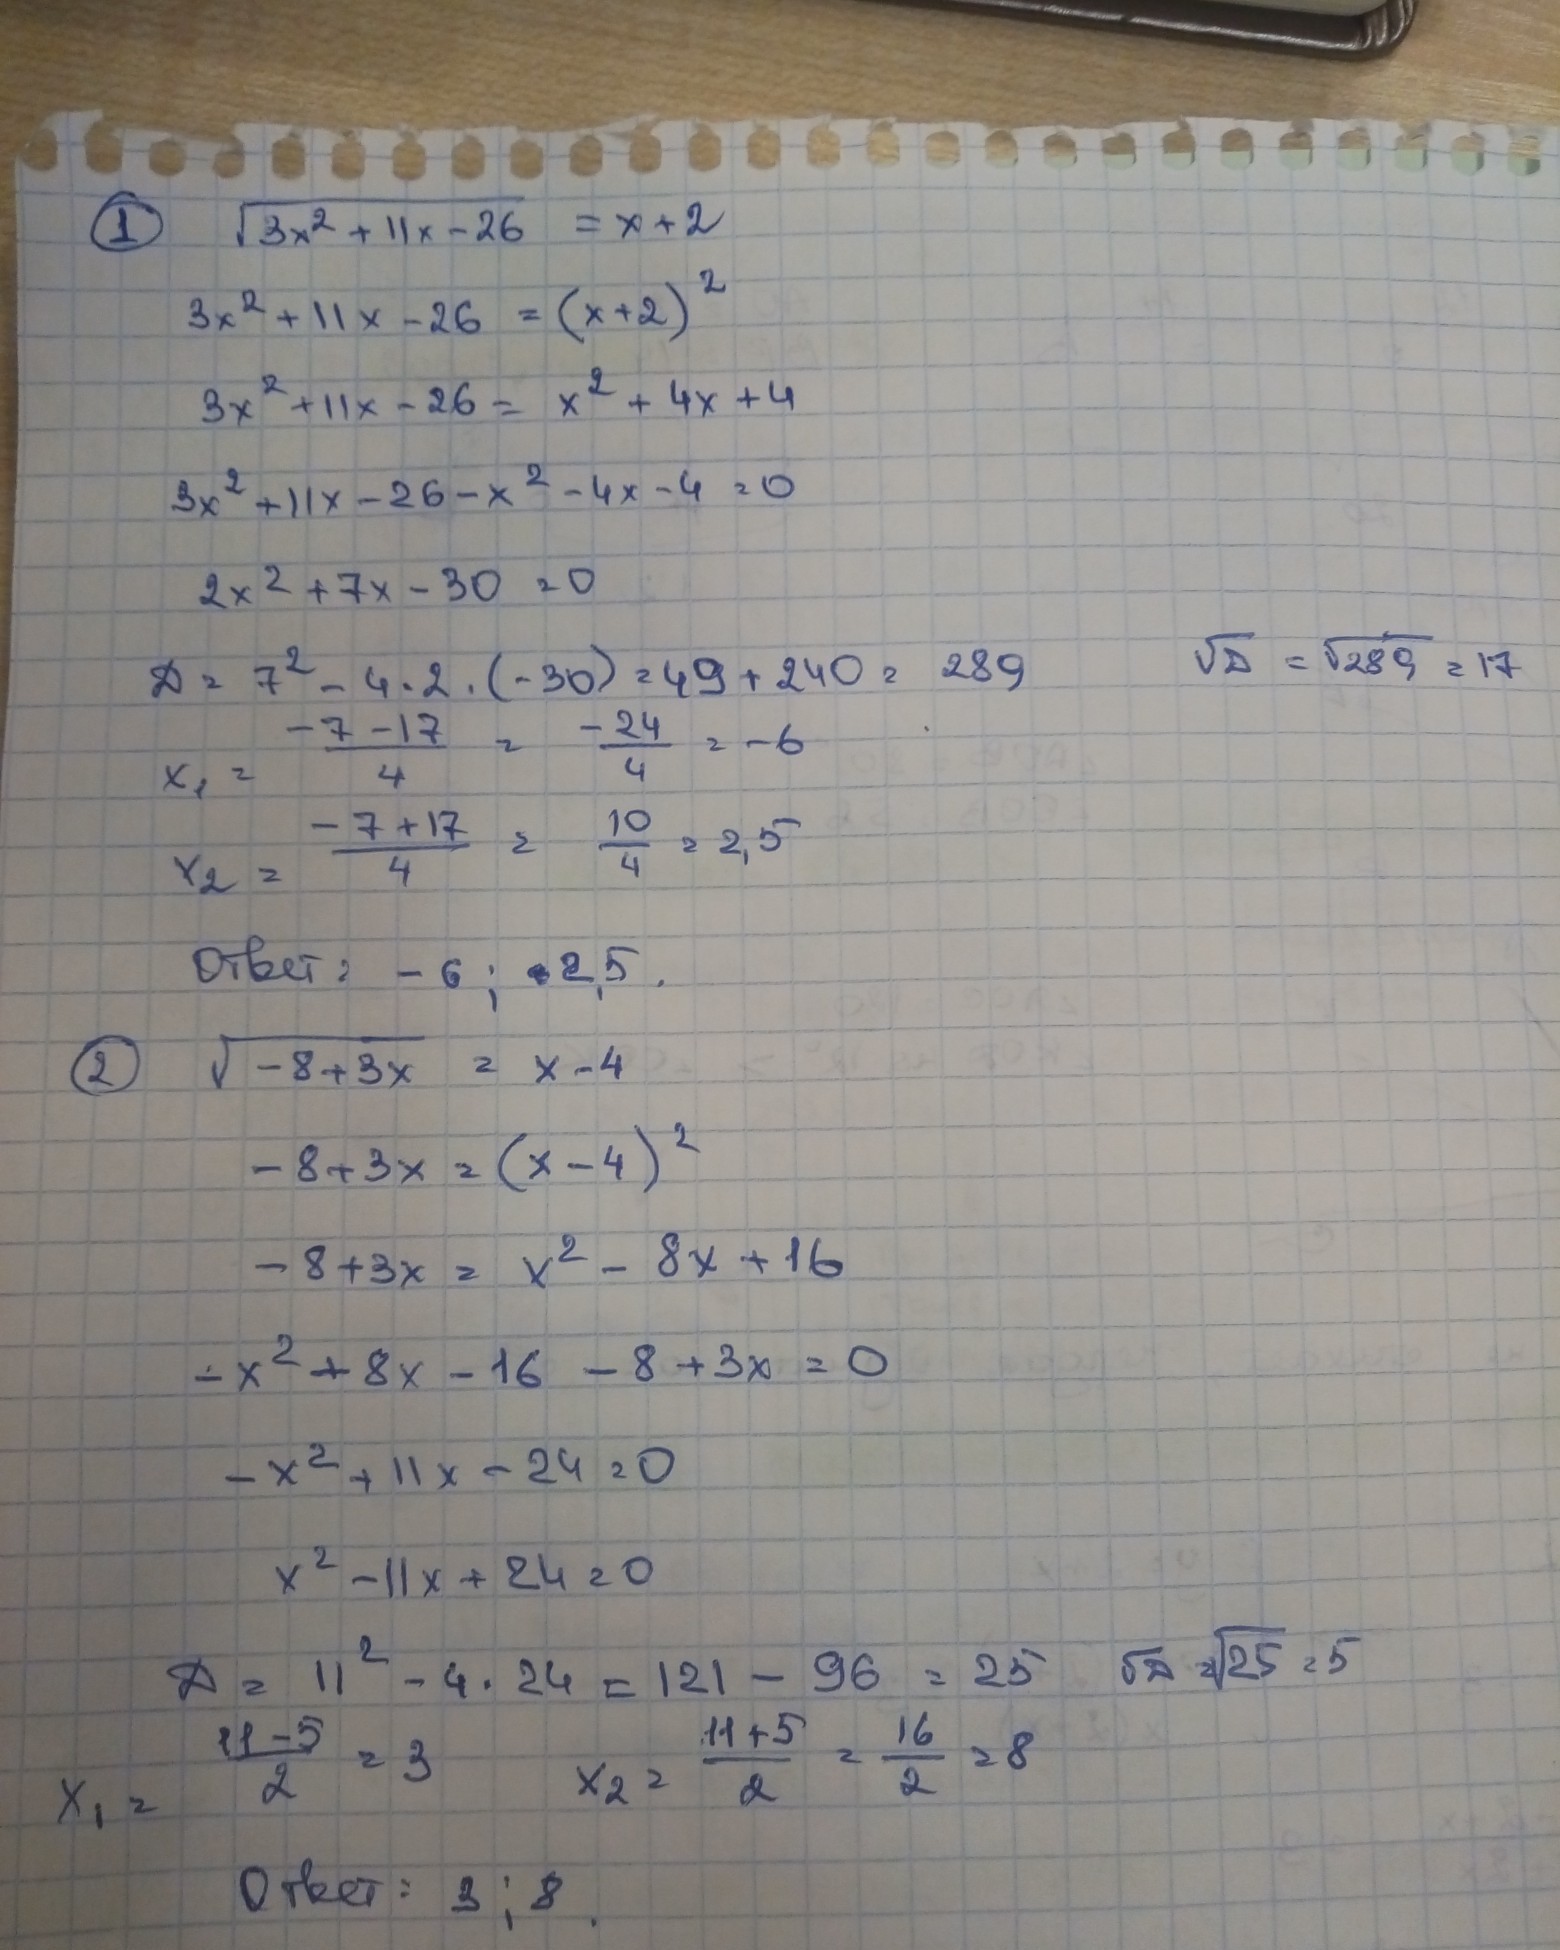 1 √3x² + 11x - 26 = x + 2
3x² + 11x - 26 = (x+2)²
3x² + 11x - 26 = x² + 4x + 4
3x² + 11x - 26 - x² - 4x - 4 = 0
2x² + 7x - 30 = 0
D = 7² - 4·2·(-30) = 49 + 240 = 289 √D = √289 = 17
x₁ = (-7-17)/4 = -24/4 = -6
x₂ = (-7+17)/4 = 10/4 = 2,5
Ответ: -6; 2,5.
2 √-8+3x = x - 4
-8+3x = (x-4)²
-8+3x = x² - 8x + 16
-x² + 8x - 16 - 8 + 3x = 0
-x² + 11x - 24 = 0
x² - 11x + 24 = 0
D = 11² - 4·24 = 121 - 96 = 25 √D = √25 = 5
x₁ = (11-5)/2 = 3 x₂ = (11+5)/2 = 16/2 = 8
Ответ: 3; 8.